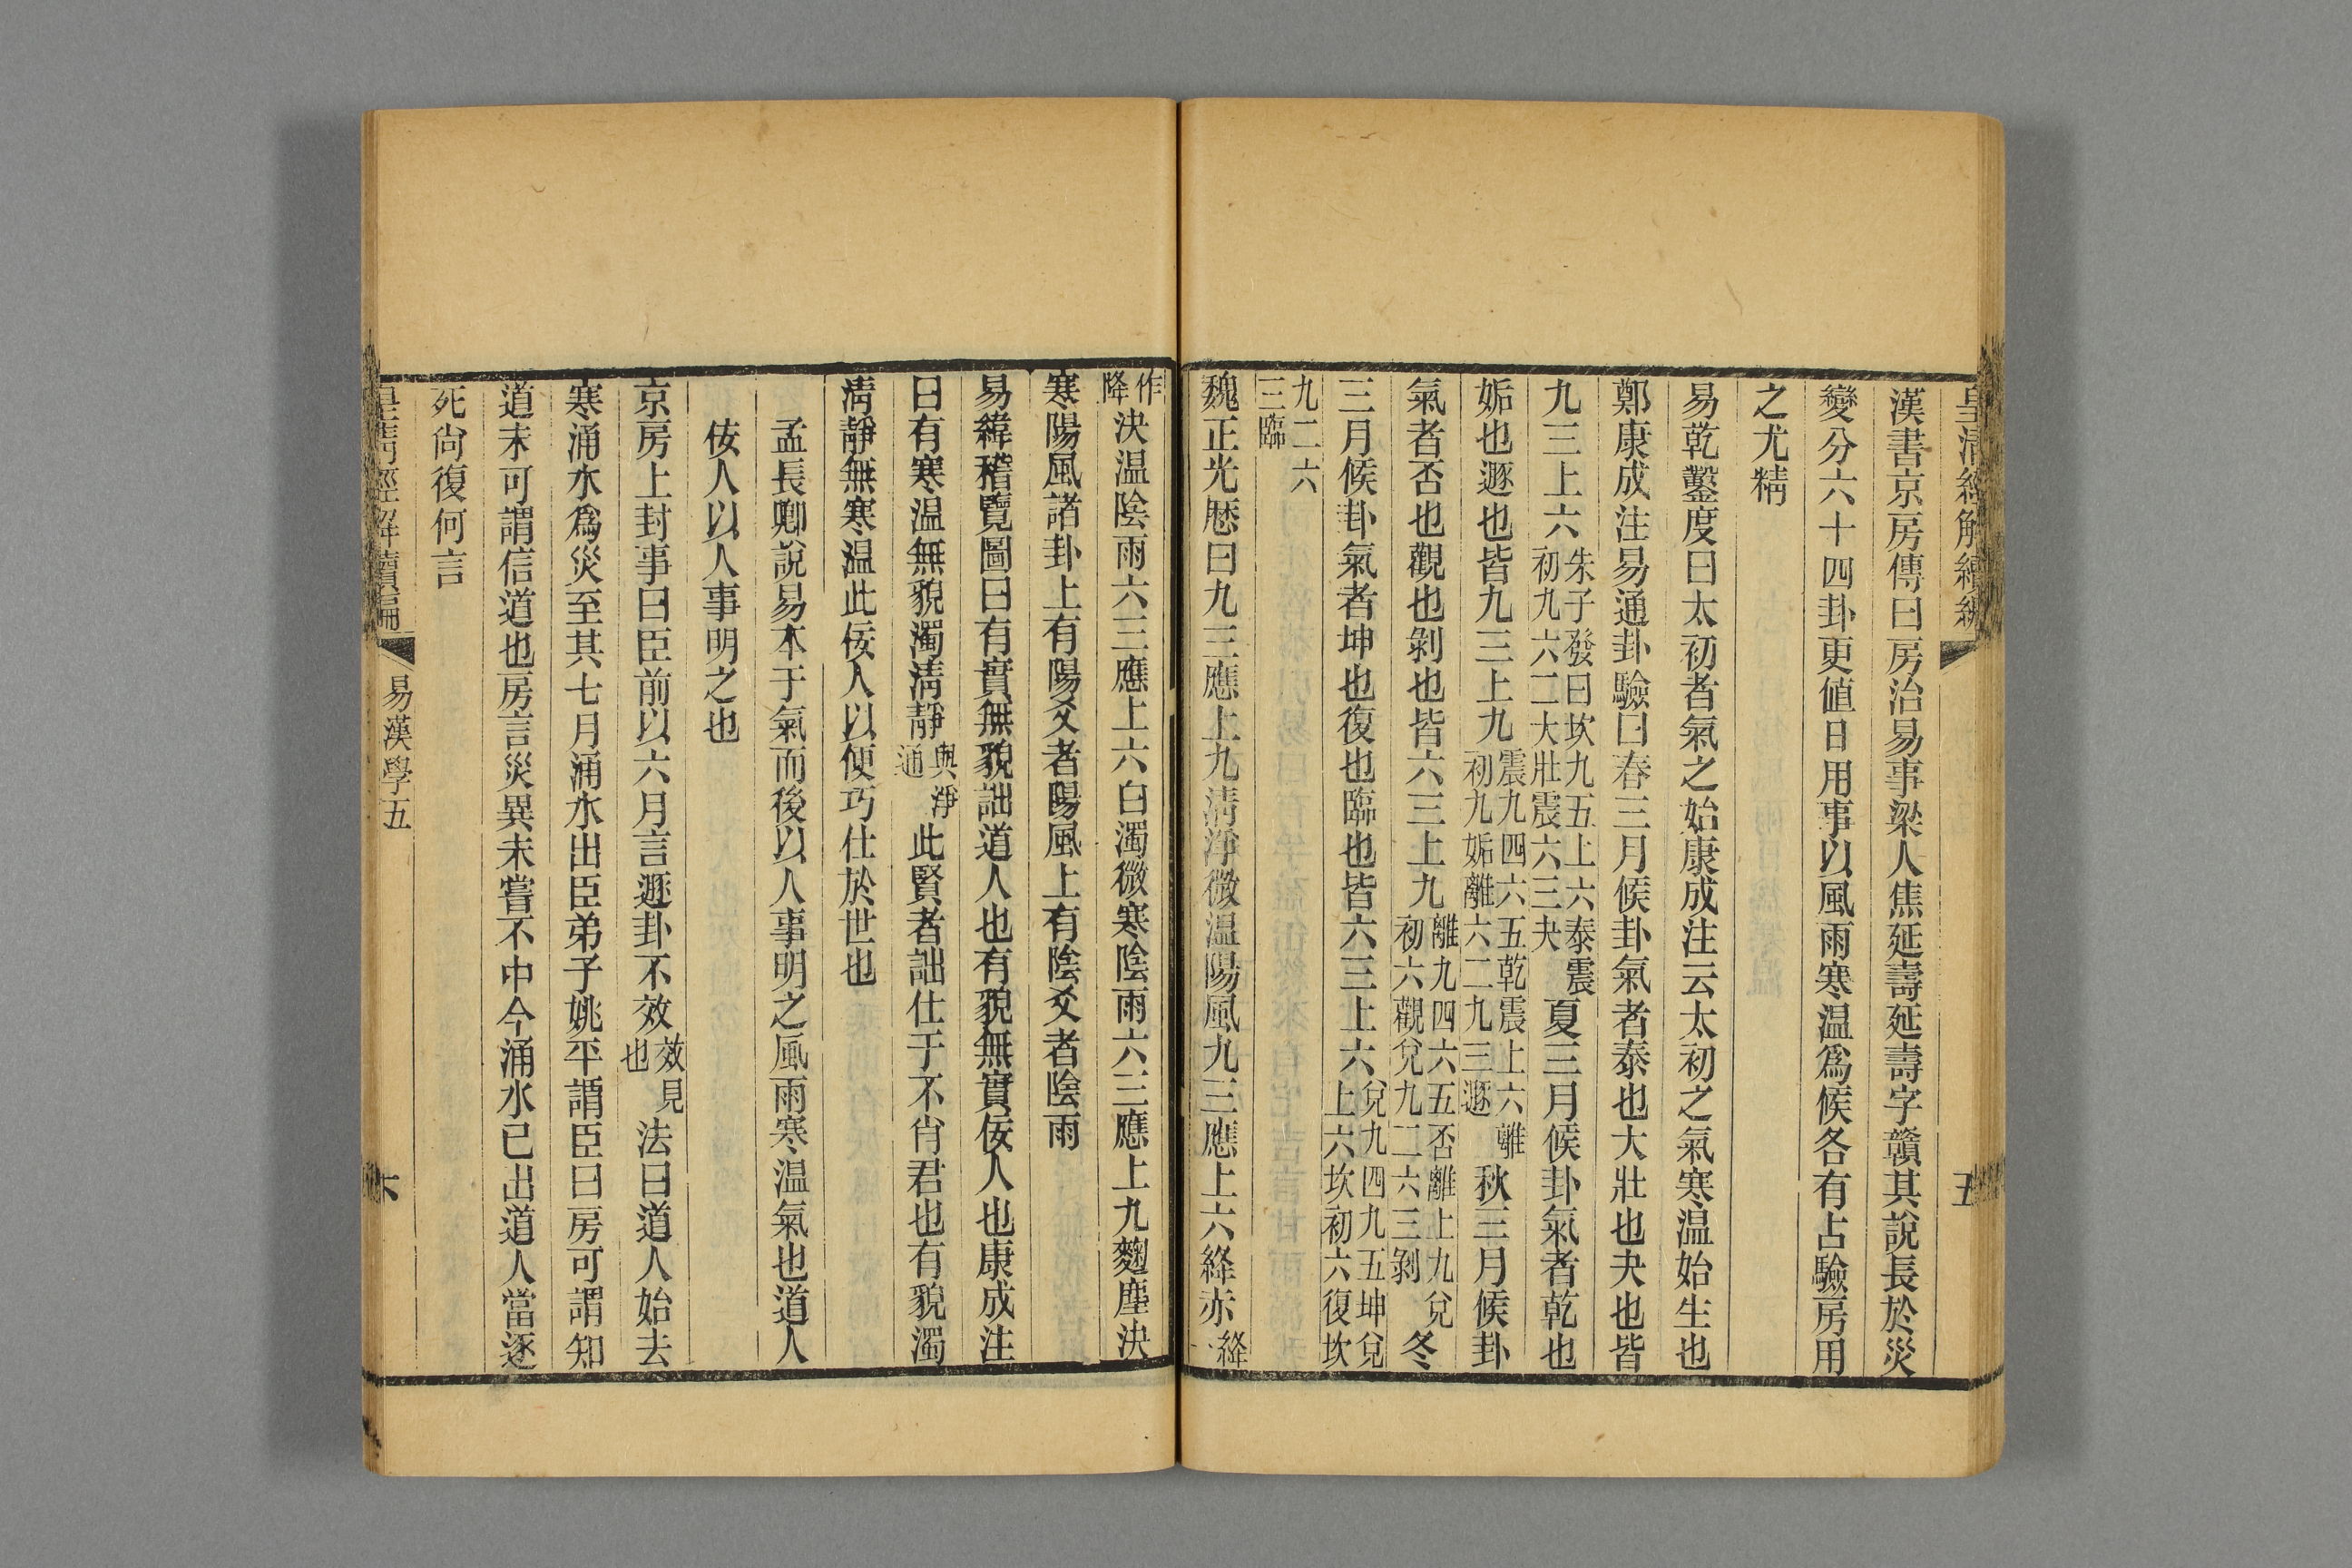 皇淸經解續編
五
漢書京房傳曰房治易事梁人焦延壽延壽字贛其說長於災
變分六十四卦更值日用事以風雨寒温爲候各有占驗房用
之尤精
易乾鑿度曰太初者氣之始康成注云太初之氣寒温始生也
鄭康成注易通卦驗曰春三月候卦氣者泰也大壯也夬也皆
九三上六朱子發曰坎九五上六泰震初九六二大壯震六三夬夏三月候卦氣者乾也
姤也遯也皆九三上九震九四六五乾震上六離初九姤離六二九三遯秋三月候卦
氣者否也觀也剝也皆六三上九離九四六五否離上九兌初六觀兌九二六三剝冬
三月候卦氣者坤也復也臨也皆六三上六兌九四九五坤兌上六坎初六復坎
九二六三臨
魏正光厯曰九三應上九淸淨微温陽風九三應上六絳赤絳一
作降決温陰雨六三應上六白濁微寒陰雨六三應上九麴塵決
寒陽風諸卦上有陽爻者陽風上有陰爻者陰雨
易緯稽覽圖曰有實無貌詘道人也有貌無實佞人也康成注
曰有寒温無貌濁淸靜與淨通此賢者詘仕于不肖君也有貌濁
淸靜無寒温此佞人以便巧仕於世也
孟長卿說易本于氣而後以人事明之風雨寒温氣也道人
佞人以人事明之也
京房上封事曰臣前以六月言遯卦不效效見也法曰道人始去
寒涌水爲災至其七月涌水出臣弟子姚平謂臣曰房可謂知
道未可謂信道也房言災異未嘗不中今涌水已出道人當逐
死尙復何言
皇淸經解續編
易漢學五
六